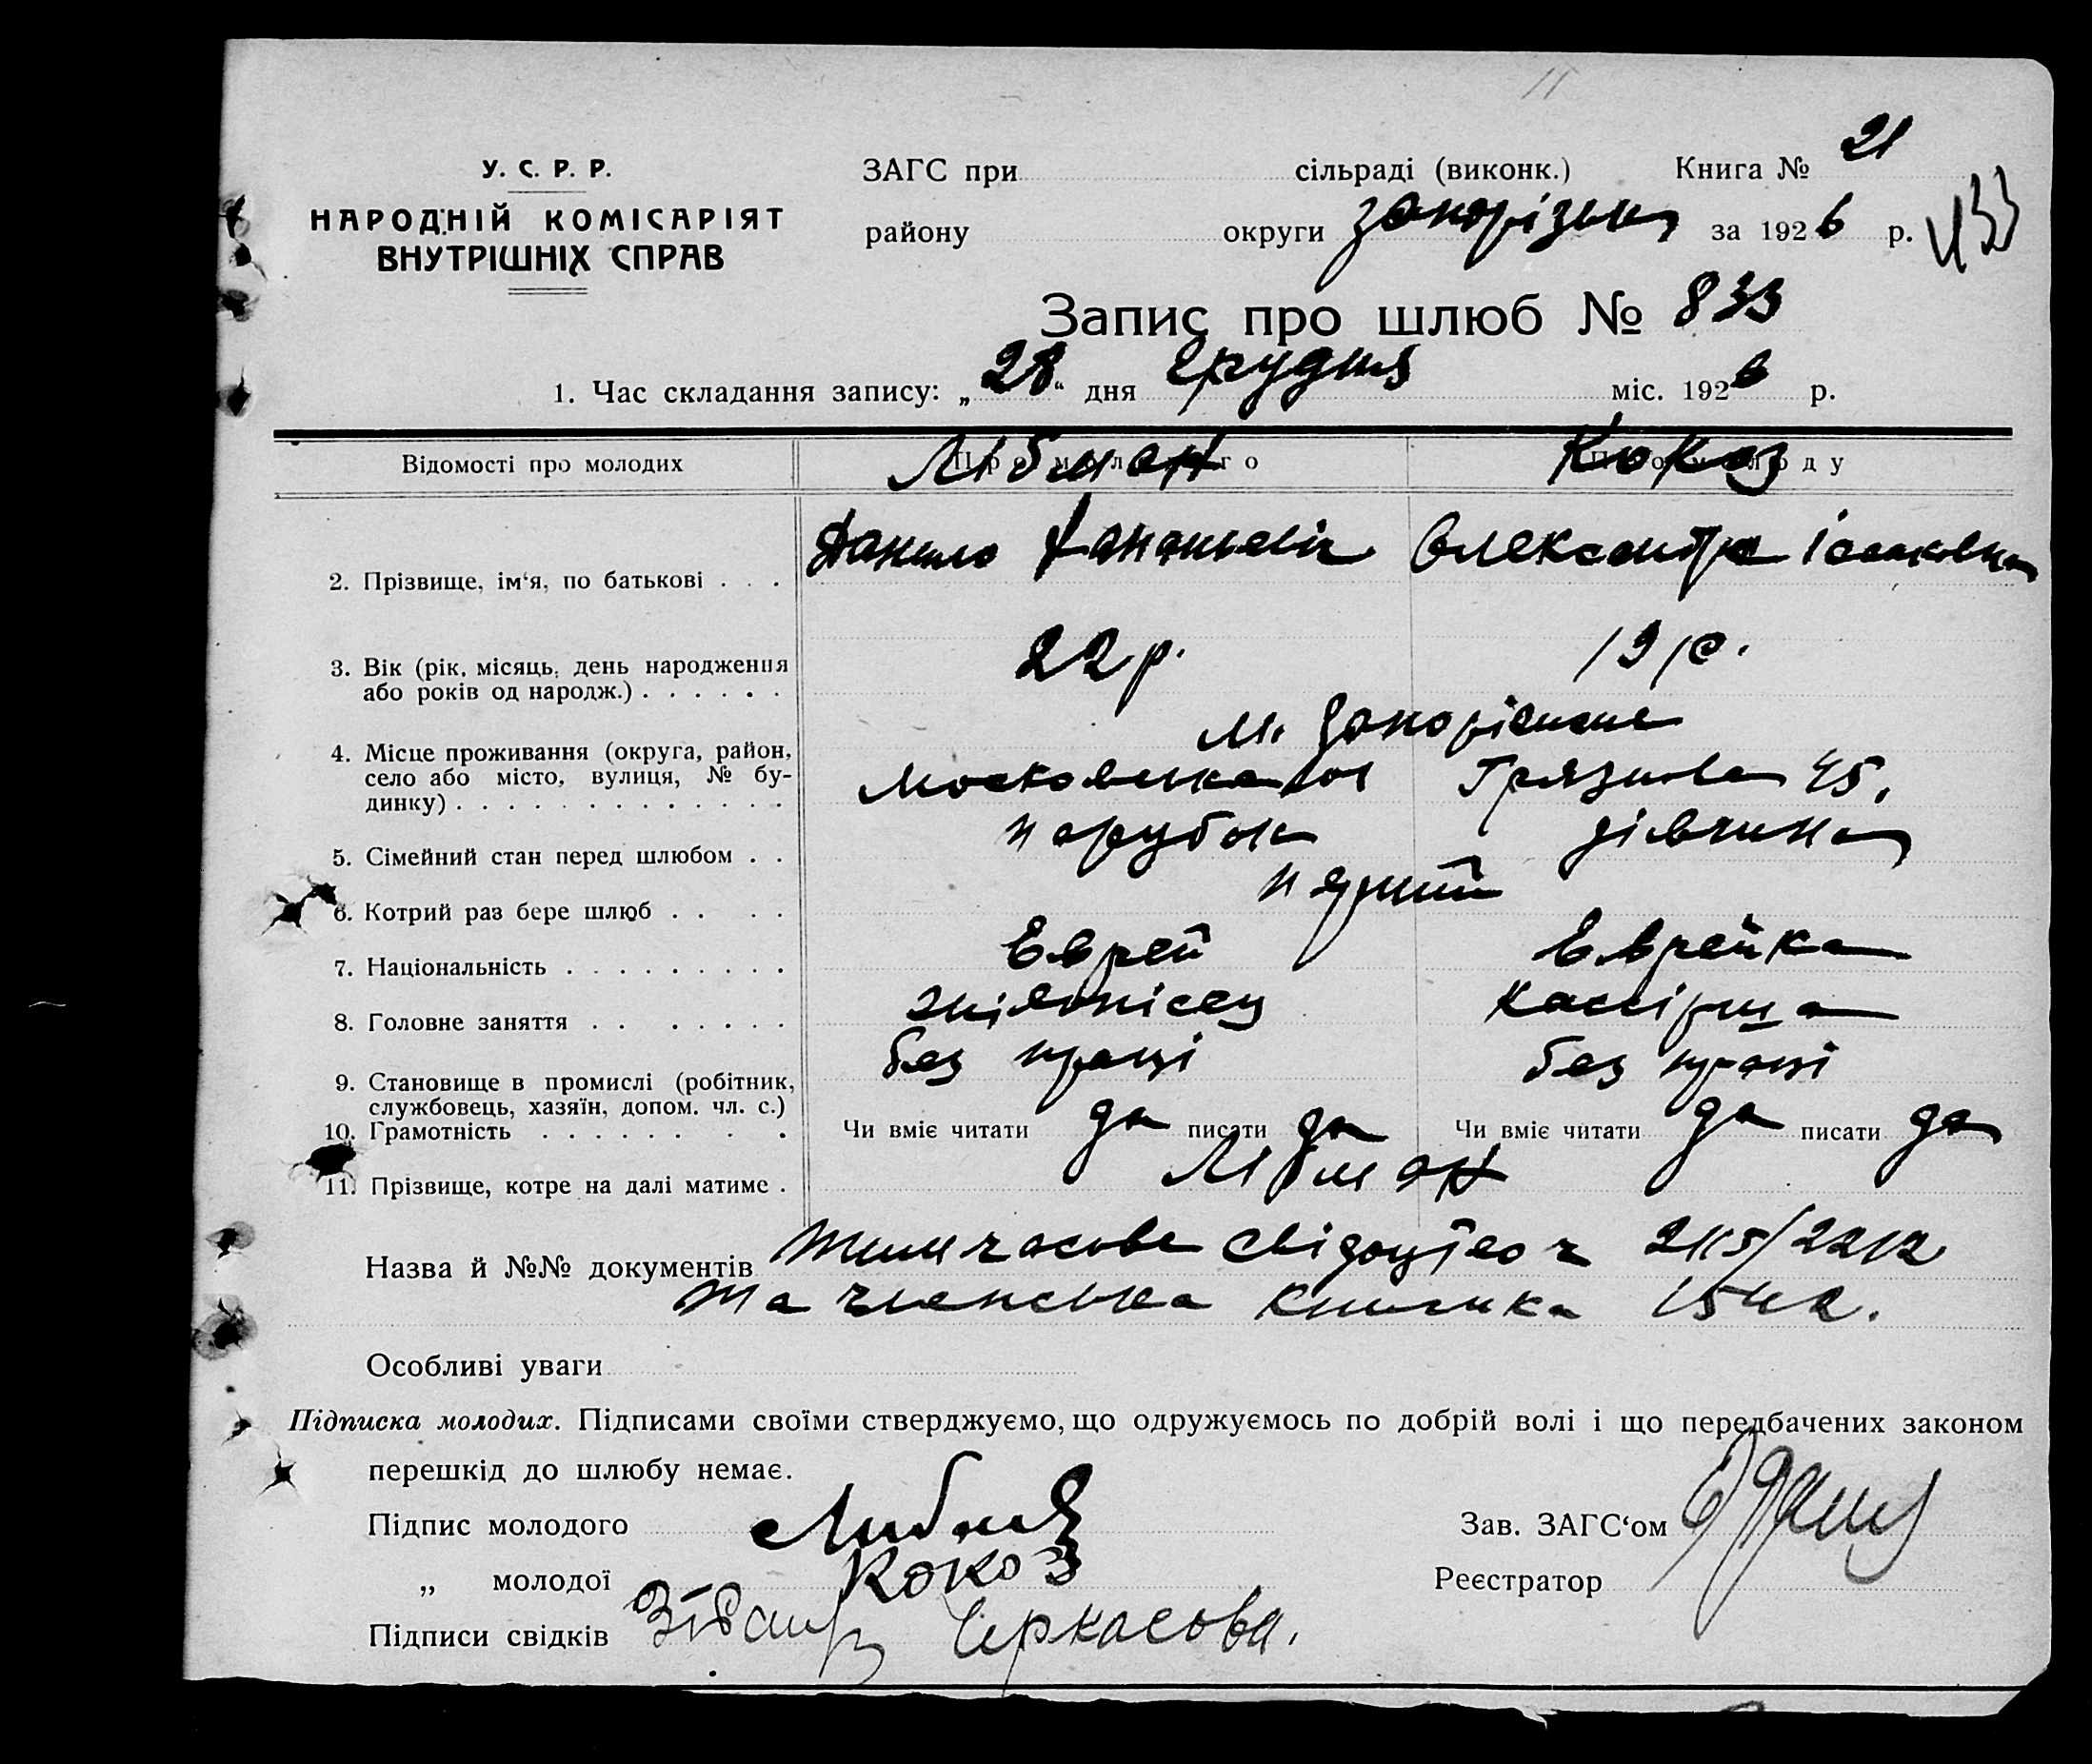 У. С. Р. Р.
НАРОДНІЙ КОМІСАРІЯТ
ВНУТРІШНІХ СПРАВ
ЗАГС при сільраді (виконк.) Книга № 21
району округи Запорізька за 1926 р.
433
Запис про шлюб № 833
1. Час складання запису: „28“ дня Грудня міс. 1926 р.
Відомості про молодих Про молодого Про молоду
Лібман Кокоз
2. Прізвище, ім‘я, по батькові . . . Данило Ананьевіч Олександра Ісааковна
3. Вік (рік, місяць, день народження
або років од народж.) . . . . . . 22 р. 19 р.
м. Запоріжжя
4. Місце проживання (округа, район,
село або місто, вулиця, № бу-
динку) . . . . . . . . . . . . . Московська Грязнова 45,
5. Сімейний стан перед шлюбом . . парубок дівчина
6. Котрий раз бере шлюб . . . . перший
7. Національність . . . . . . . . . Еврей Еврейка
8. Головне заняття . . . . . . . . Кассірша
9. Становище в промислі (робітник,
службовець, хазяїн, допом. чл. с.) без праці без праці
10. Грамотність . . . . . . . . . Чи вміє читати да писати да Чи вміє читати да писати да
11. Прізвище, котре на далі матиме . Лібман
Назва й №№ документів Тимчасове свідоцтво ч 2115/2212
та членська книжка 1542.
Особливі уваги
Підписка молодих. Підписами своїми стверджуємо, що одружуємось по добрій волі і що передбачених законом
перешкід до шлюбу немає.
Підпис молодого Либман Зав. ЗАГС‘ом
„ молодої Кокоз Реєстратор
Підписи свідків Черкасова.